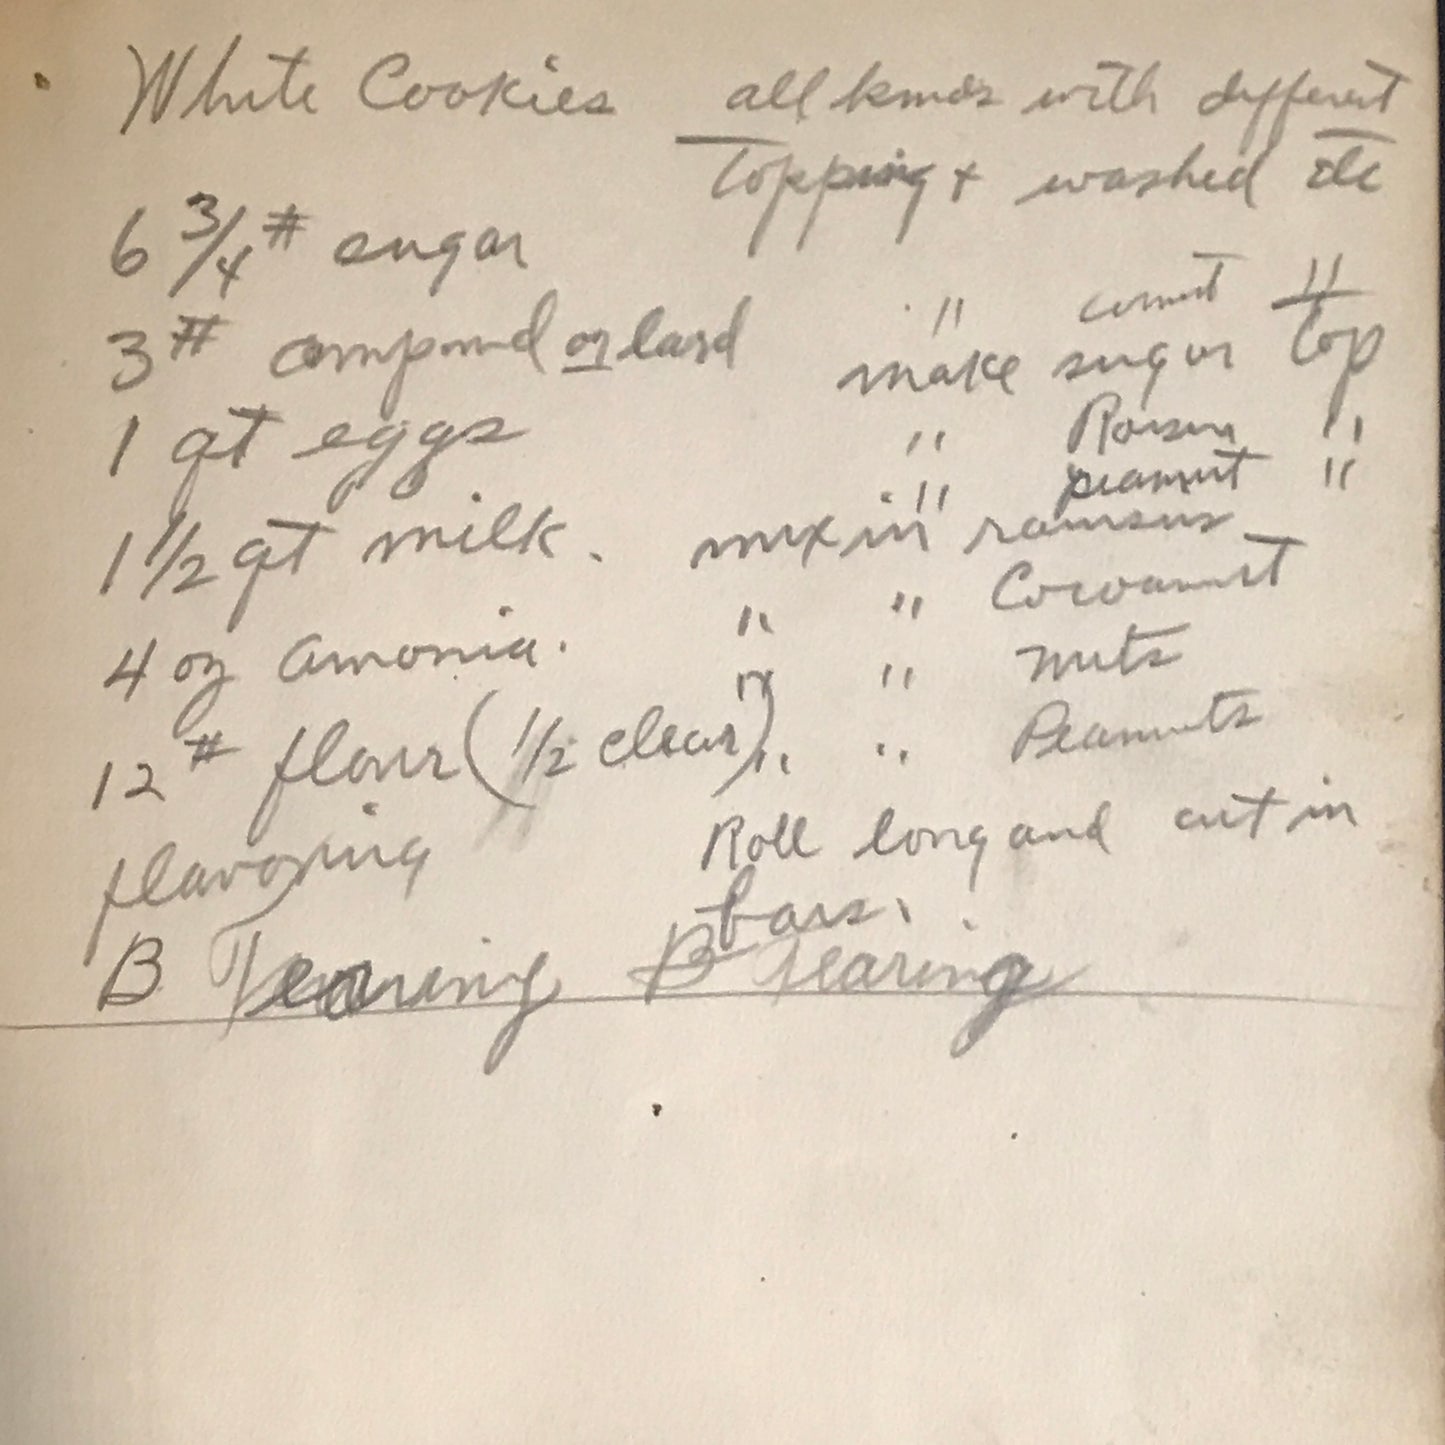 White Cookies
6 3/4 # sugar
3 # compound or lard
1 qt eggs
1 1/2 qt milk.
4 oz amonia.
12 # flour (1/2 clear)
flavoring
B Tearing B Tearing
all kinds with different
Topping + washed etc
" "
make sugar top
" Raisin "
" peanut "
mix in raisins
" " Cocoanut
" " nuts
" " Peanuts
Roll long and cut in
bars.